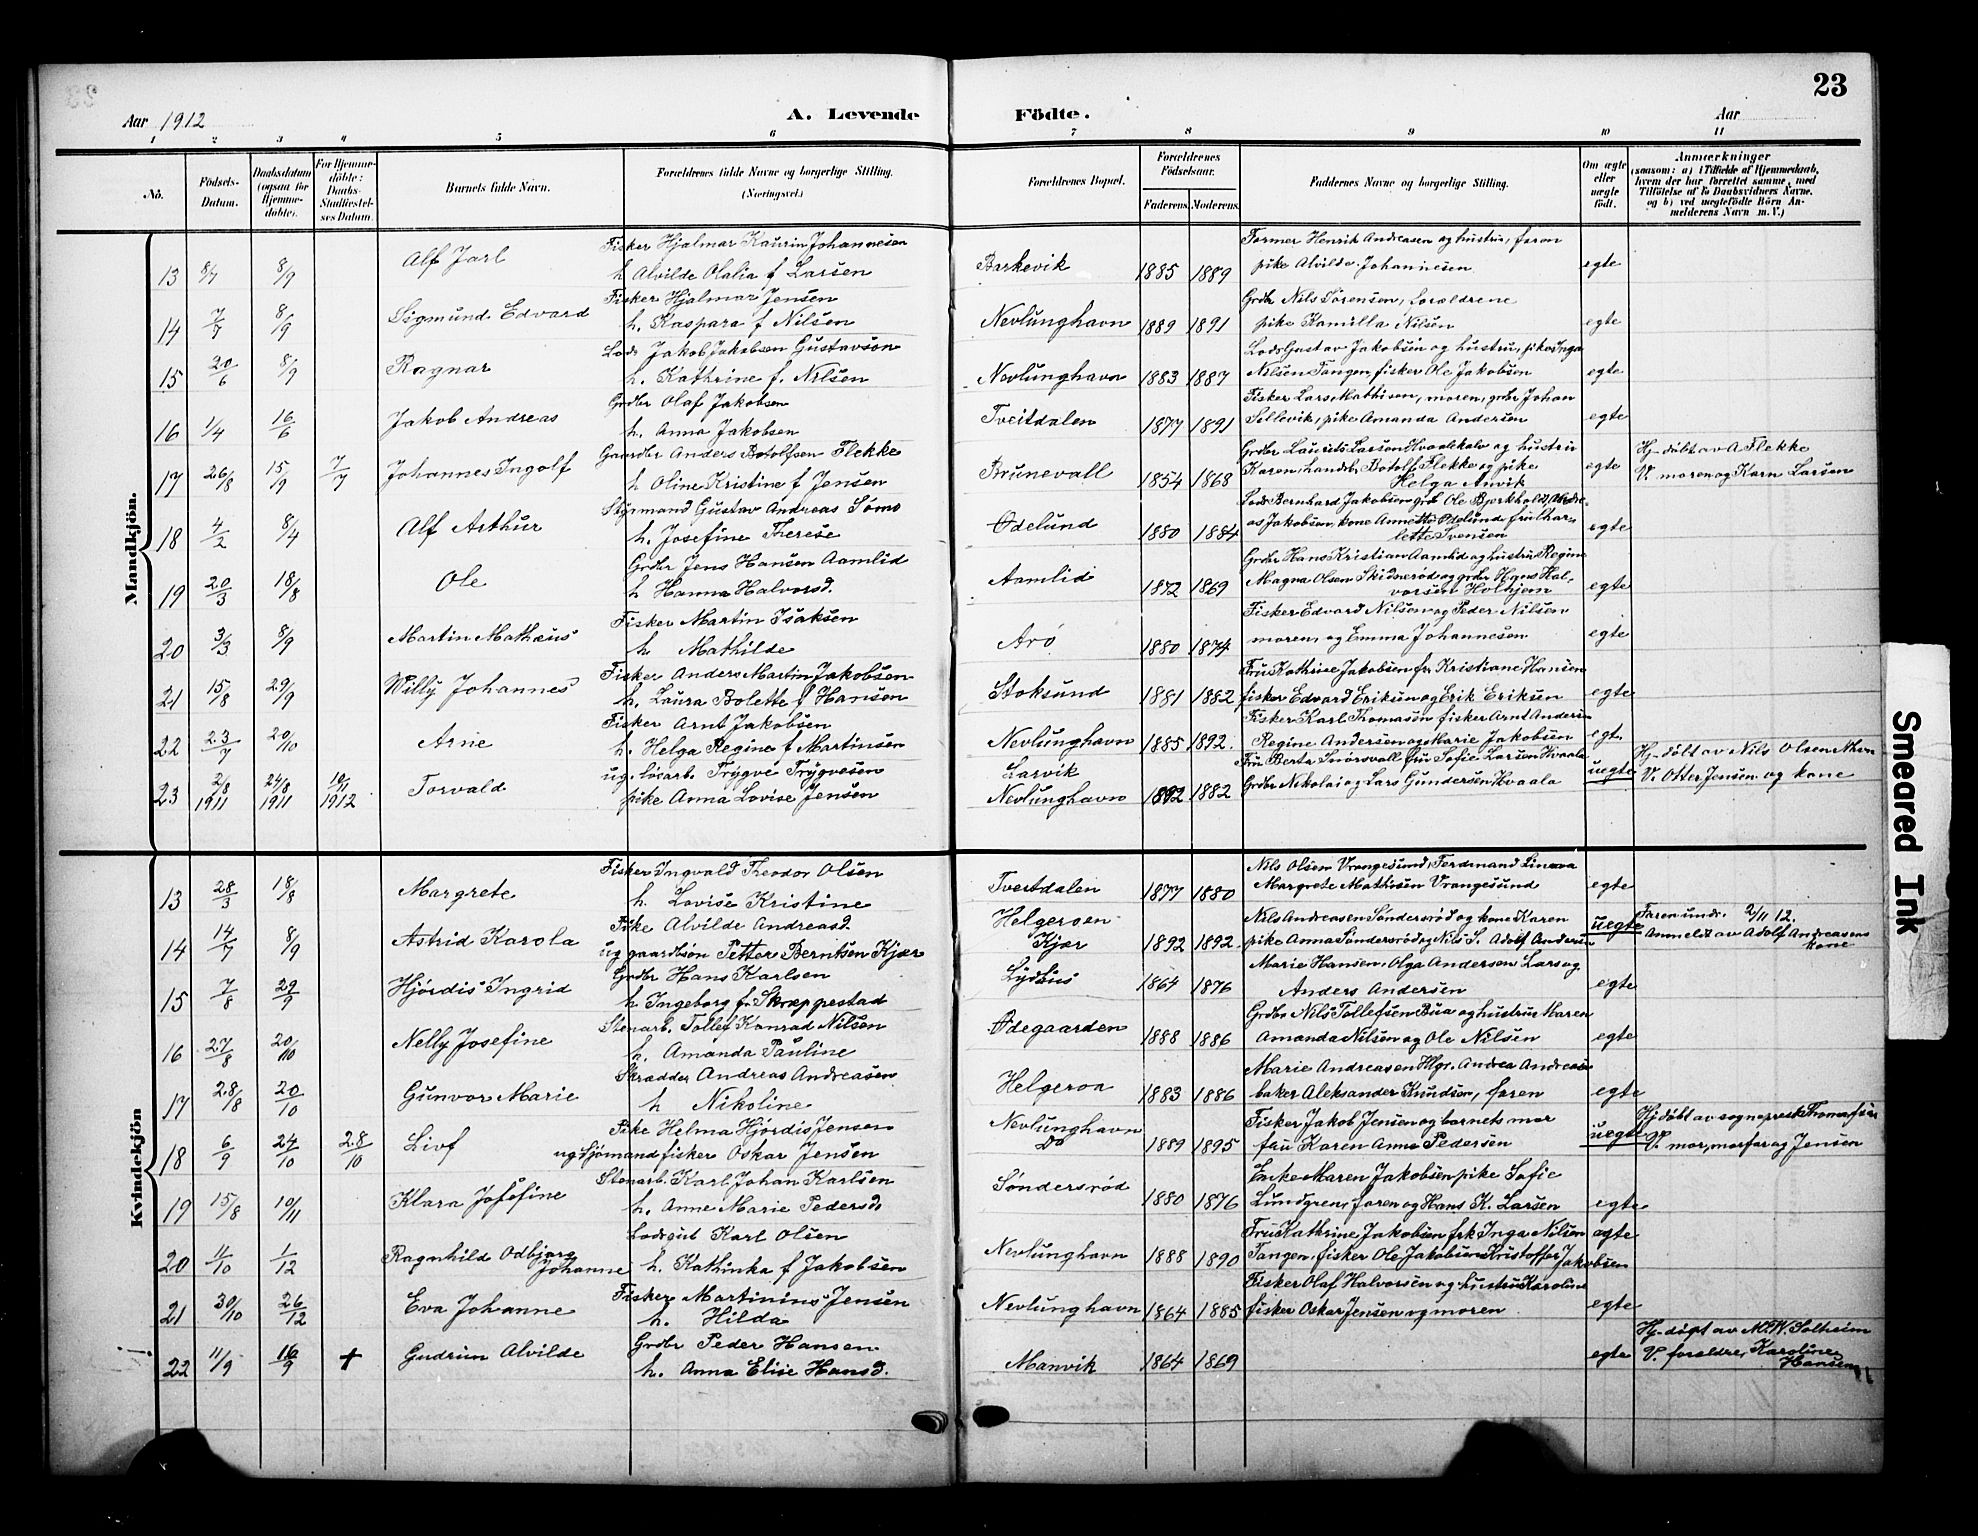 23
Aar 1912 A. Levende Födte. Aar
1 2 3 4 5 6 7 8 9 10 11
No. Födsels-Datum. Daabsdatum (ogsaa for Hjemme-döbte). For Hjemme-döbte: Daabs-Stadfæstel-ses Datum. Barnets fulde Navn. Forældrenes fulde Navne og borgerlige Stilling. (Næringsvei.) Forældrenes Bopæl. Forældrenes Födselsaar. Faderens. Moderens. Faddernes Navne og borgerlige Stilling. Om ægte eller uægte födt. Anmærkninger (saasom: a) i Tilfælde af Hjemmedaab, hvem der har forrettet samme, med Tilföielse af to Daabsvidners Navne, og b) ved uægtefödte Börn An-melderens Navn m. V.)
Mandkjön.
Fisker Hjalmar Kaurin Johannesen Former Henrik Andreasen og hustru, faren
13 8/7 8/9 Alf Jarl h Alvilde Olalia f Larsen Barkevik 1885 1889 pike Alvilde Johannesen egte
Fisker Hjalmar Jensen Grdbr Nils Sørensen, foreldrene
14 7/7 8/9 Sigmund Edvard h. Kaspara f Nilsen Nevlunghavn 1889 1891 pike Kamilla Nilsen egte
Lods Jakob Jakobsen Gustavson Lods Gustav Jakobsen og hustru, pike Inga
15 20/6 8/9 Ragnar h. Kathrine f. Nilsen Nevlunghavn 1883 1887 Nilsen Tangen, fisker Ole Jakobsen egte
Grdbr Olaf Jakobsen Fisker Lars Mathisen, moren, grdbr Johan
16 1/4 16/6 Jakob Andreas h. Anna Jakobsen Tveitdalen 1877 1891 Sillevik, pike Amanda Andersen egte
Gaardbr Anders Botolfsen Flekke Grdbr Laurits Larsen Hvaalekale og hustru Hj-døbt av A Flekke
17 26/8 15/9 7/7 Johannes Ingolf h Oline Kristine f Jensen Brunevall 1854 1868 Karen, landbr Botolf Flekke og pike Helga Anvik egte V. moren og Karn Larsen
Styrmand Gustav Andreas Sømo Lods Bernhard Jakobsen grdb Ole Bjerkholt, Andre-
18 4/2 8/4 Alf Arthur h. Josefine Therese Ødelund 1880 1884 as Jakobsen, kone Annette Ødelund frk Char-lotte Svensen egte
Grdbr Jens Hansen Aamlid Grdbr Hans Kristian Aamlid og hustru Regine
19 20/3 18/8 Ole h Hanna Halvorsd. Aamlid 1872 1869 Magna Olsen Skidnerød og grdbr Hans Hal-vorsen Holhjem egte
Fisker Martin Isaksen Fisker Edvard Nilsen og Peder Nilsen
20 3/3 8/9 Martin Mathæus h Mathilde Arø 1880 1874 moren, og Emma Johannesen egte
Fisker Anders Martin Jakobsen Fru Kathrine Jakobsen frk Kristiane Hansen
21 15/8 29/9 Willy Johannes h. Laura Bolette f Hansen Stoksund 1881 1882 fisker Edvard Eriksen og Erik Eriksen egte
Fisker Arnt Jakobsen Fisker Karl Thomasen fisker Arnt Anders
22 23/7 20/10 Arne h. Helga Regine f Martinsen Nevlunghavn 1885 1892. Regine Andersen og Marie Jakobsen egt.
ug. løsarb. Trygve Trygvesen Larvik Fru Berta Snorsvall fru Sofie Larsen Hvaala Hj-døbt av Nils Olsen
23 2/8 1911 24/8 1911 10/11 1912 Torvald pike Anna Lovise Jensen Nevlunghavn 1892 1882 Grdbr Nikolai og Lars Gundersen Hvaala uegte V. Otter Jensen og kone
Kvindekjön
Fisker Ingvald Theodor Olsen Nils Olsen Vrangesund, Ferdmand
13 28/3 18/8 Margrete h. Lovise Kristine Tveitdalen 1877 1880 Margrete Mathisen Vrangesund egte
Pike Alvilde Andreasd. Helgeroen Nils Andreasen Søndersrød og kone Karen Faren undr. 2/11 12.
14 14/7 8/9 Astrid Karola ug gaardbsøn Petter Berntsen Kjær Kjær 1892 1892 pike Anna Søndersrød og Nils S. Adolf Andersen uegte Anmeldt av Adolf Andreasens kone
Grdbr Hans Karlsen Marie Hansen, Olga Andersen Lars og
15 7/8 29/9 Hjørdis Ingrid h Ingeborg fr Skræppestad Lydhus 1864 1876 Anders Andersen egte
Stenarb. Tollef Konrad Nilsen Grdbr Nils Tollefsen Bua og hustru Karen
16 27/8 20/10 Nelly Josefine h. Amanda Pauline Ødegaarden 1888 1886 Amanda Nilsen og Ole Nilsen egte
Skrædder Andreas Andreasen Marie Andreasen Hlgr. Andrea Andreasen
17 28/8 20/10 Gunvor Marie h Nikoline Helgeroa 1883 1886 baker Aleksander Knudsen, faren egte
Pike Helma Hjørdis Jensen Nevlunghavn Fisker Jakob Jensen og barnets mor Hj døbt av sogneprest Thomas
18 6/9 24/10 28/10 Livf ug sjømand fisker Oskar Jensen Do 1889 1895 fru Karen Anna Pedersen uegte V. mor, morfar og Jensen
Stenarb. Karl Johan Karlsen Enke Maren Jakobsen pike Sofie
19 15/8 10/11 Klara Josefine h. Anne Marie Pedersd. Søndersrød 1880 1876 Lundgren, faren og Hans K. Larsen egte
Lodsgut Karl Olsen Fru Kathrine Jakobsen frk Inga Nilsen
20 11/10 1/12 Ragnhild Odbjørg Johanne h. Kathinka f Jakobsen Nevlunghavn 1888 1890 Tangen, fisker Ole Jakobsen Kristoffer Jakobsen egte
Fisker Martinius Jensen Fisker Olaf Halvorsen og hustru Karoline
21 30/10 26/12 Eva Johanne h. Hilda Nevlunghavn 1864 1885 fisker Oskar Jensen og moren egte
Grdbr Peder Hansen Hj-døpt av M. W. Solheim
22 11/9 16/9 + Gudrun Alvilde h. Anna Elise Hansd. Manvik 1864 1869 egte V. foreldre, Karoline Hansen
Smeared Ink